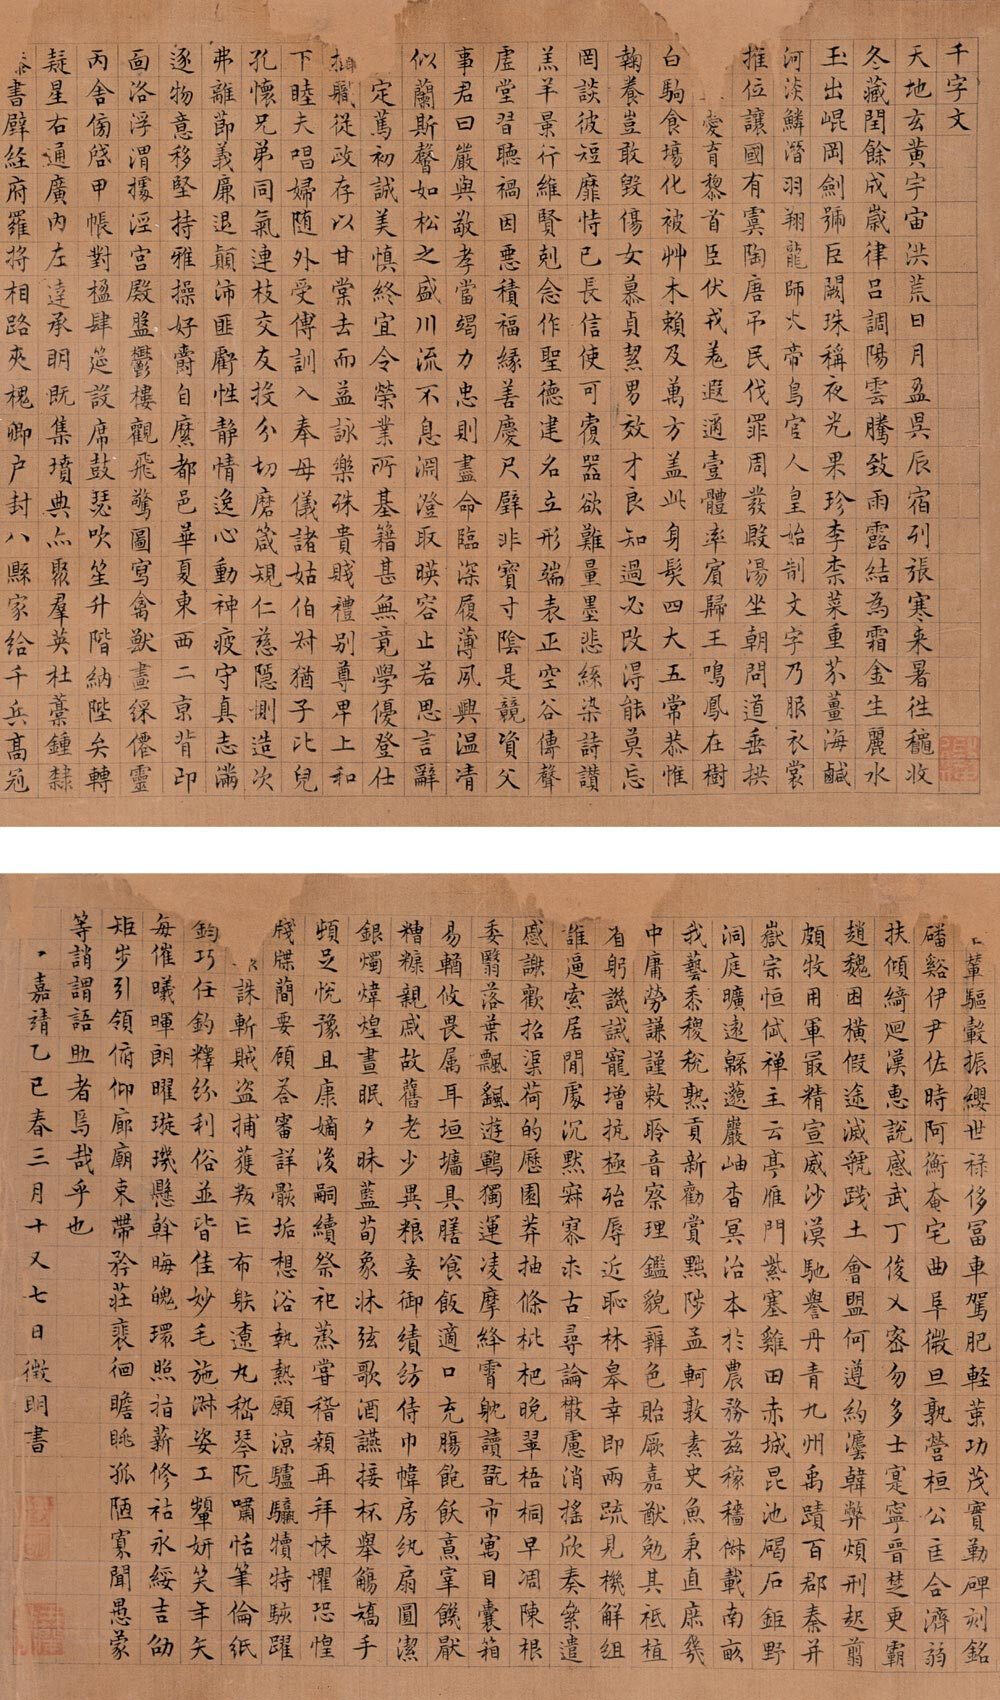 千字文
天地玄黃宇宙洪荒日月盈昃辰宿列張寒來暑往穐收
冬藏閏餘成歲律呂調陽雲騰致雨露結為霜金生麗水
玉出崐岡劍號巨闕珠稱夜光果珍李柰菜重芥薑海鹹
河淡鱗潛羽翔龍師火帝鳥官人皇始制文字乃服衣裳
推位讓國有虞陶唐弔民伐罪周發殷湯坐朝問道垂拱
愛育黎首臣伏戎羌遐邇壹體率賓歸王鳴鳳在樹
白駒食場化被艸木賴及萬方盖此身髮四大五常恭惟
鞠養豈敢毀傷女慕貞絜男效才良知過必改得能莫忘
罔談彼短靡恃己長信使可覆器欲難量墨悲絲染詩讚
羔羊景行維賢剋念作聖德建名立形端表正空谷傳聲
虛堂習聽禍因惡積福緣善慶尺璧非寶寸陰是競資父
事君曰嚴與敬孝當竭力忠則盡命臨深履薄夙興溫凊
似蘭斯馨如松之盛川流不息淵澄取暎容止若思言辭
定篤初誠美慎終宜令榮業所基籍甚無竟學優登仕
攝職從政存以甘棠去而益詠樂殊貴賤禮別尊卑上和
下睦夫唱婦随外受傅訓入奉母儀諸姑伯叔猶子比兒
孔懷兄弟同氣連枝交友投分切磨箴規仁慈隱惻造次
弗離節義廉退顛沛匪虧性静情逸心動神疲守真志滿
逐物意移堅持雅操好爵自縻都邑華夏東西二京背邙
面洛浮渭據涇宮殿盤鬱樓觀飛驚圖寫禽獸畫綵僊靈
丙舍傍啓甲帳對楹肆筵設席鼓瑟吹笙升階納陛弁轉
疑星右通廣內左達承明既集墳典亦聚羣英杜藁鍾隸
漆書壁經府羅將相路夾槐卿户封八縣家給千兵高冠
輦驅轂振纓世祿侈富車駕肥輕策功茂實勒碑刻銘
磻谿伊尹佐時阿衡奄宅曲阜微旦孰營桓公匡合濟弱
扶傾綺迴漢惠說感武丁俊乂密勿多士寔寧晉楚更霸
趙魏困橫假途滅虢踐土會盟何遵約灋韓弊煩刑起翦
頗牧用軍最精宣威沙漠馳譽丹青九州禹蹟百郡秦并
嶽宗恒岱禪主云亭雁門紫塞雞田赤城昆池碣石鉅野
洞庭曠遠緜邈巖岫杳冥治本於農務茲稼穡俶載南畝
我藝黍稷稅熟貢新勸賞黜陟孟軻敦素史魚秉直庶幾
中庸勞謙謹敕聆音察理鑑貌辨色貽厥嘉猷勉其祗植
省躬譏誡寵增抗極殆辱近恥林皋幸即兩疏見機解組
誰逼索居閒處沉默寂寥求古尋論散慮消搖欣奏累遣
慼謝歡招渠荷的歷園莽抽條枇杷晚翠梧桐早凋陳根
委翳落葉飄颻遊鵾獨運凌摩絳霄耽讀翫市寓目囊箱
易輶攸畏属耳垣墻具膳飡飯適口充腸飽飫烹宰饑厭
糟糠親戚故舊老少異粮妾御績紡侍巾幃房紈扇圓潔
銀燭煒煌晝眠夕寐藍荀象牀弦歌酒讌接杯舉觴矯手
頓足悅豫且康嫡後嗣續祭祀蒸嘗稽顙再拜悚懼恐惶
牋牒簡要顧荅審詳骸垢想浴執熱願涼驢騾犢特駭躍
誅斬賊盜捕獲叛亡布射遼丸嵇琴阮嘯恬筆倫紙
鈞巧任釣釋紛利俗並皆佳妙毛施淑姿工顰妍笑年矢
每催曦暉朗曜璇璣懸斡晦魄環照指薪修祜永綏吉劭
矩步引領俯仰廊廟束帶矜莊裵徊瞻眺孤陋寡聞愚蒙
等誚謂語助者焉哉乎也
嘉靖乙巳春三月十又七日徵明書